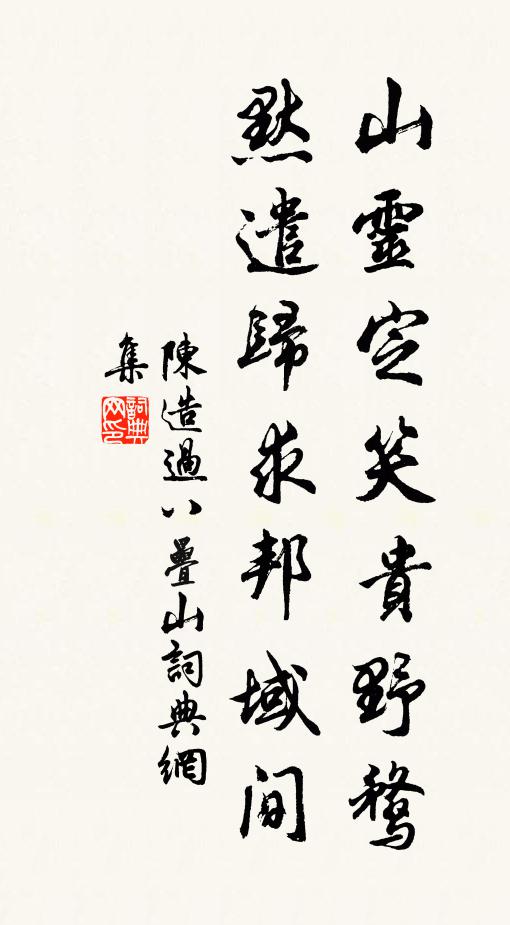 山靈定笑貴野鶩
默遣歸求邦域間
陳造過八疊山詞典網
集
詞典
网印